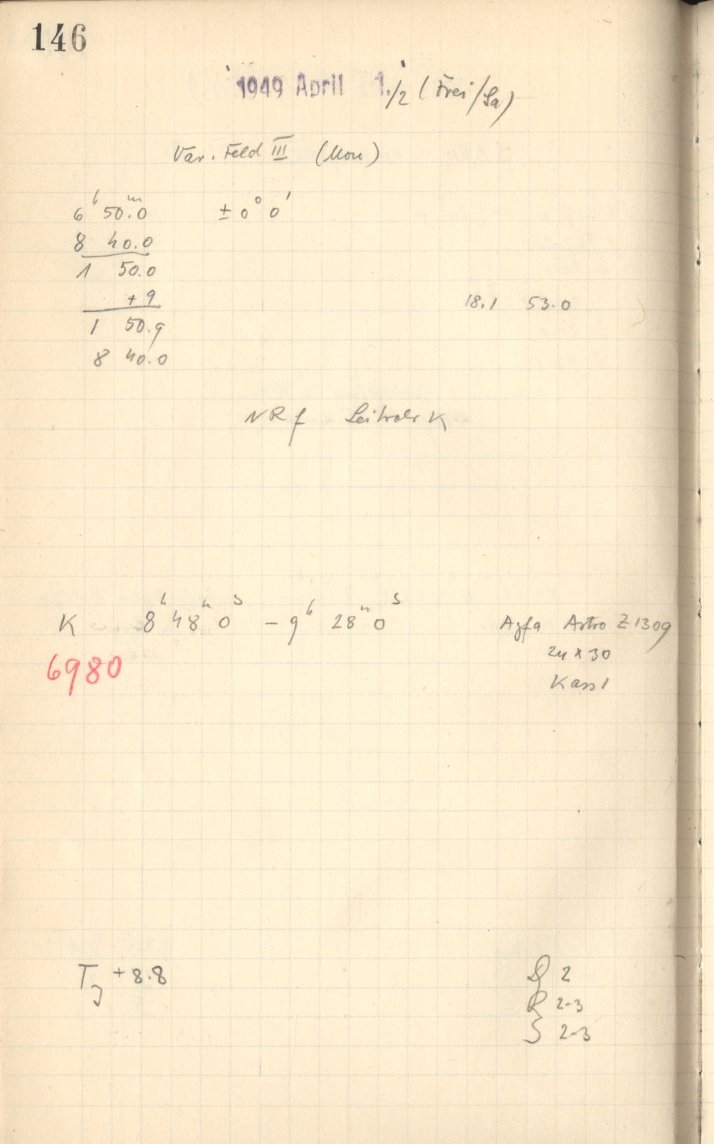 146
1949 April 1./2 (Frei/Sa)
Var. Feld III (Mon)
6ʰ 50.ᵐ0 ± 0° 0'
8 40.0
1 50.0
+ 9
18.1 53.0
1 50.9
8 40.0
NRf Leitrohr K
K 8ʰ 48ᵐ 0ˢ – 9ʰ 28ᵐ 0ˢ Agfa Astro Z 1309
24 x 30
6980
Kass 1
T_J + 8.8
D 2
R 2-3
S 2-3